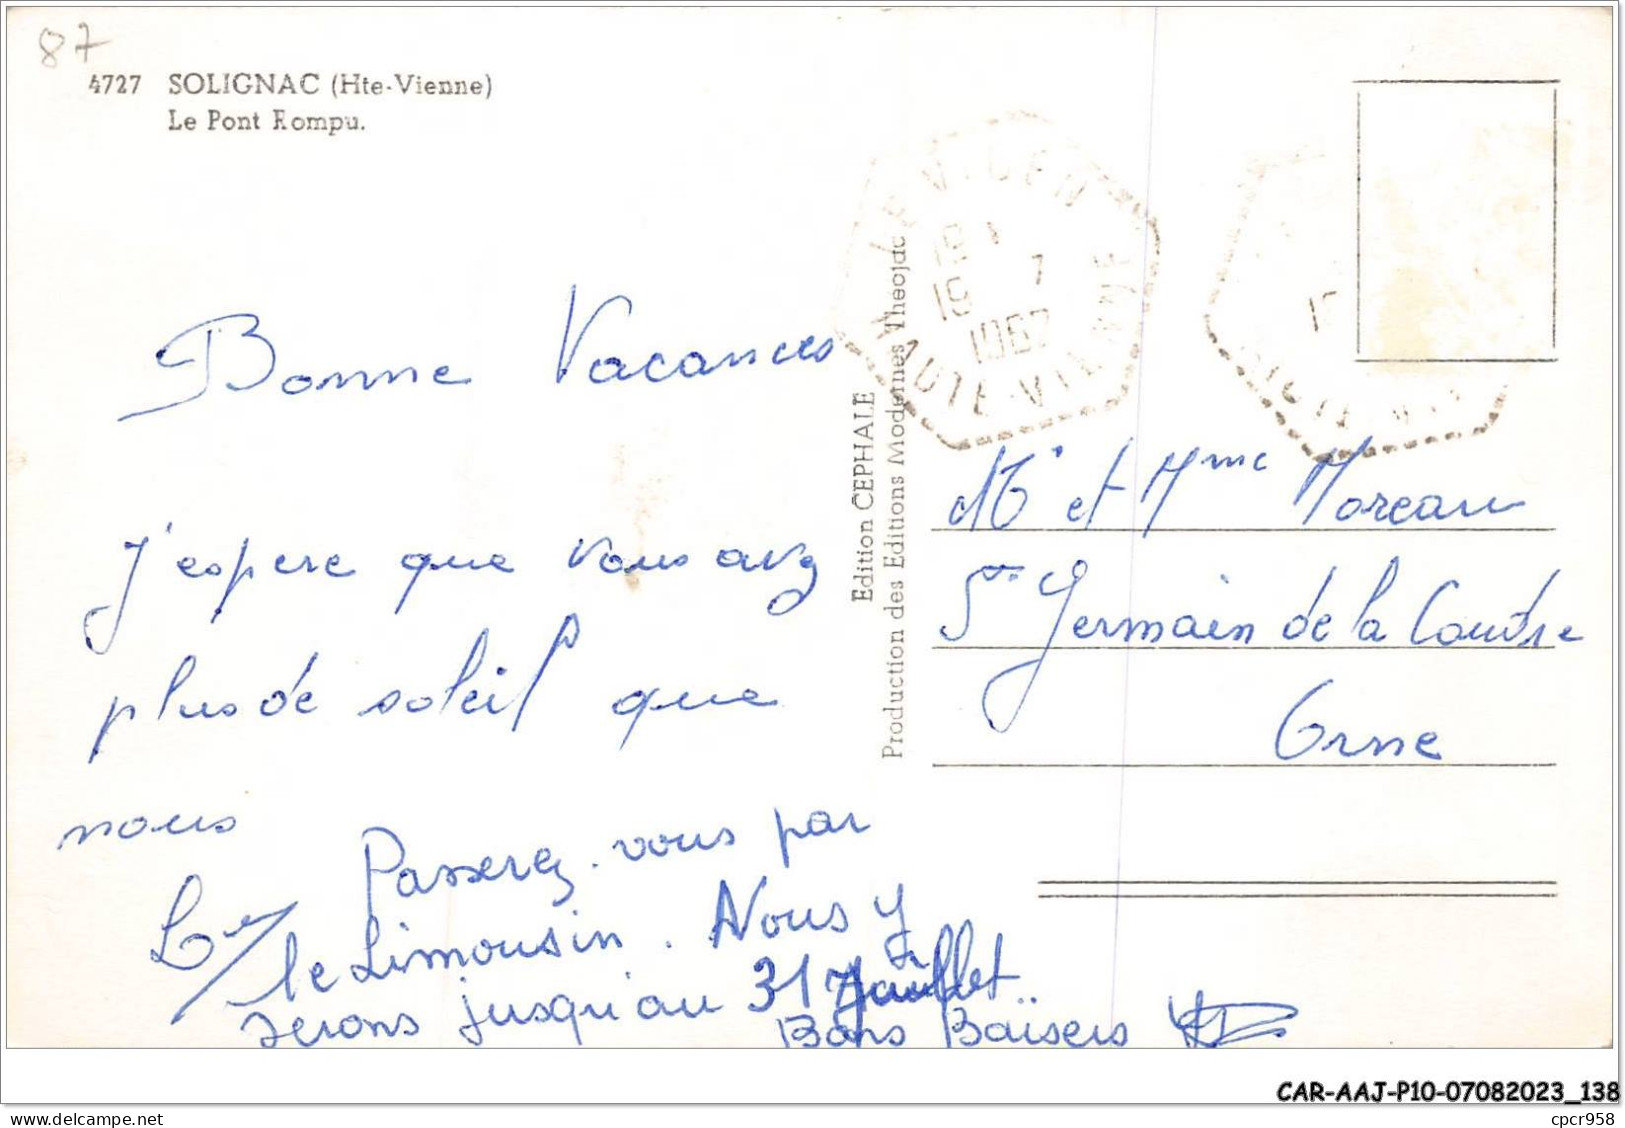 87
4727 SOLIGNAC (Hte-Vienne)
Le Pont Rompu.
Bonne Vacances
J'espere que vous avez
plus de soleil que
nous
Passerez-vous par
le Limousin. Nous y
serons jusqu'au 31 Juillet.
Bons Baisers
Edition CEPHALE
Production des Editions Modernes Theojac
LE VIGEN
19 - 7
1962
HAUTE-VIENNE
Mr et Mme Moreau
St Germain de la Coudre
Orne
CAR-AAJ-P10-07082023_138
cpcr958